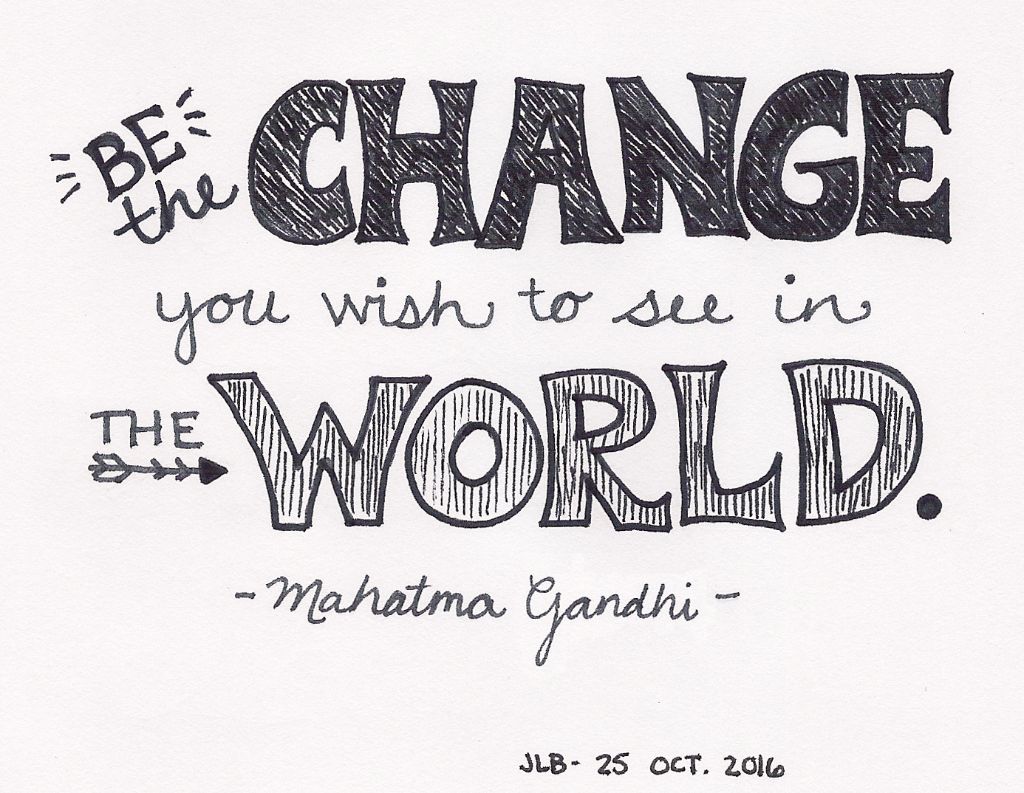 BE the CHANGE
you wish to see in
THE WORLD.
- Mahatma Gandhi -
JLB - 25 OCT. 2016